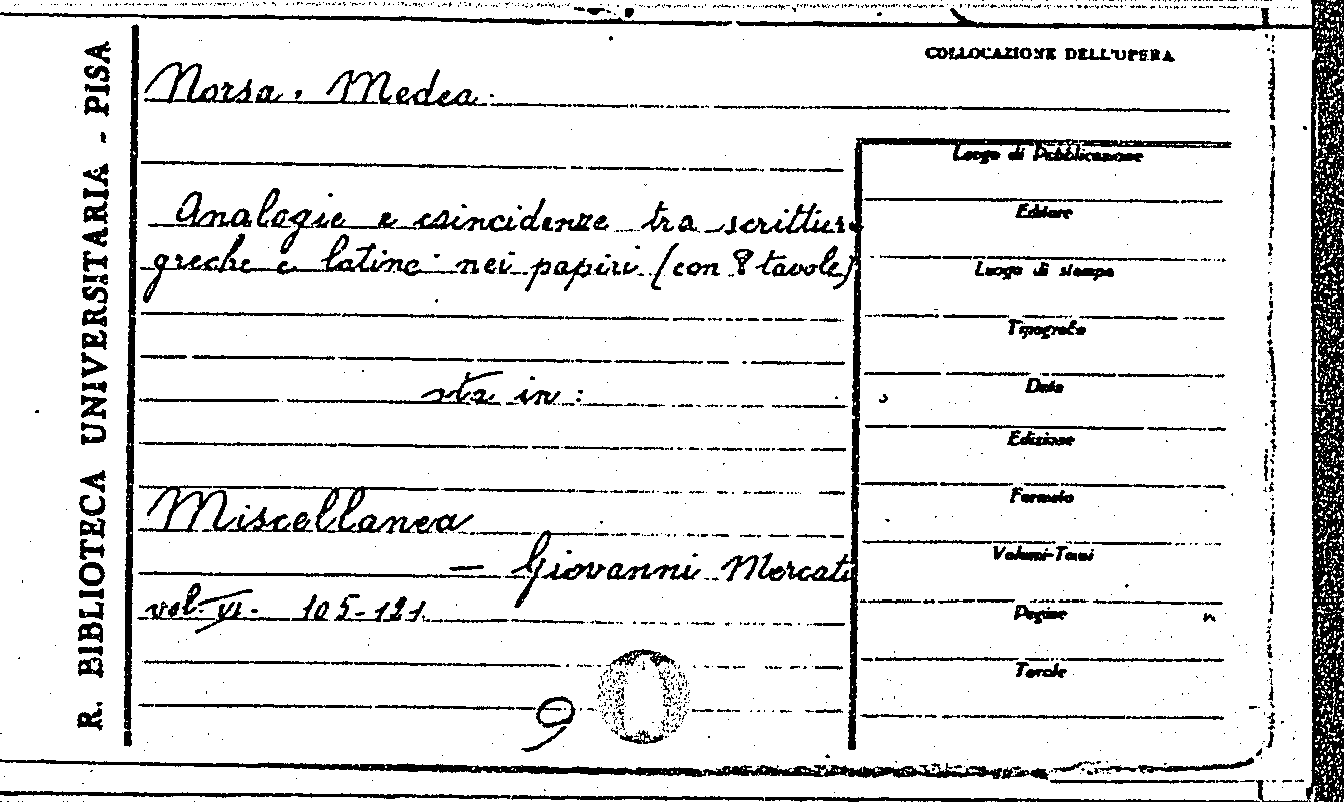 COLLOCAZIONE DELL'OPERA
R. BIBLIOTECA UNIVERSITARIA - PISA
Norsa, Medea.
Analogie e coincidenze tra scritture
greche e latine nei papiri (con 8 tavole)
sta in:
Miscellanea
— Giovanni Mercati
vol. VI. 105-121.
9
Luogo di Pubblicazione
Editore
Luogo di stampa
Tipografia
Data
Edizione
Formato
Volumi-Tomi
Pagine
Tavole